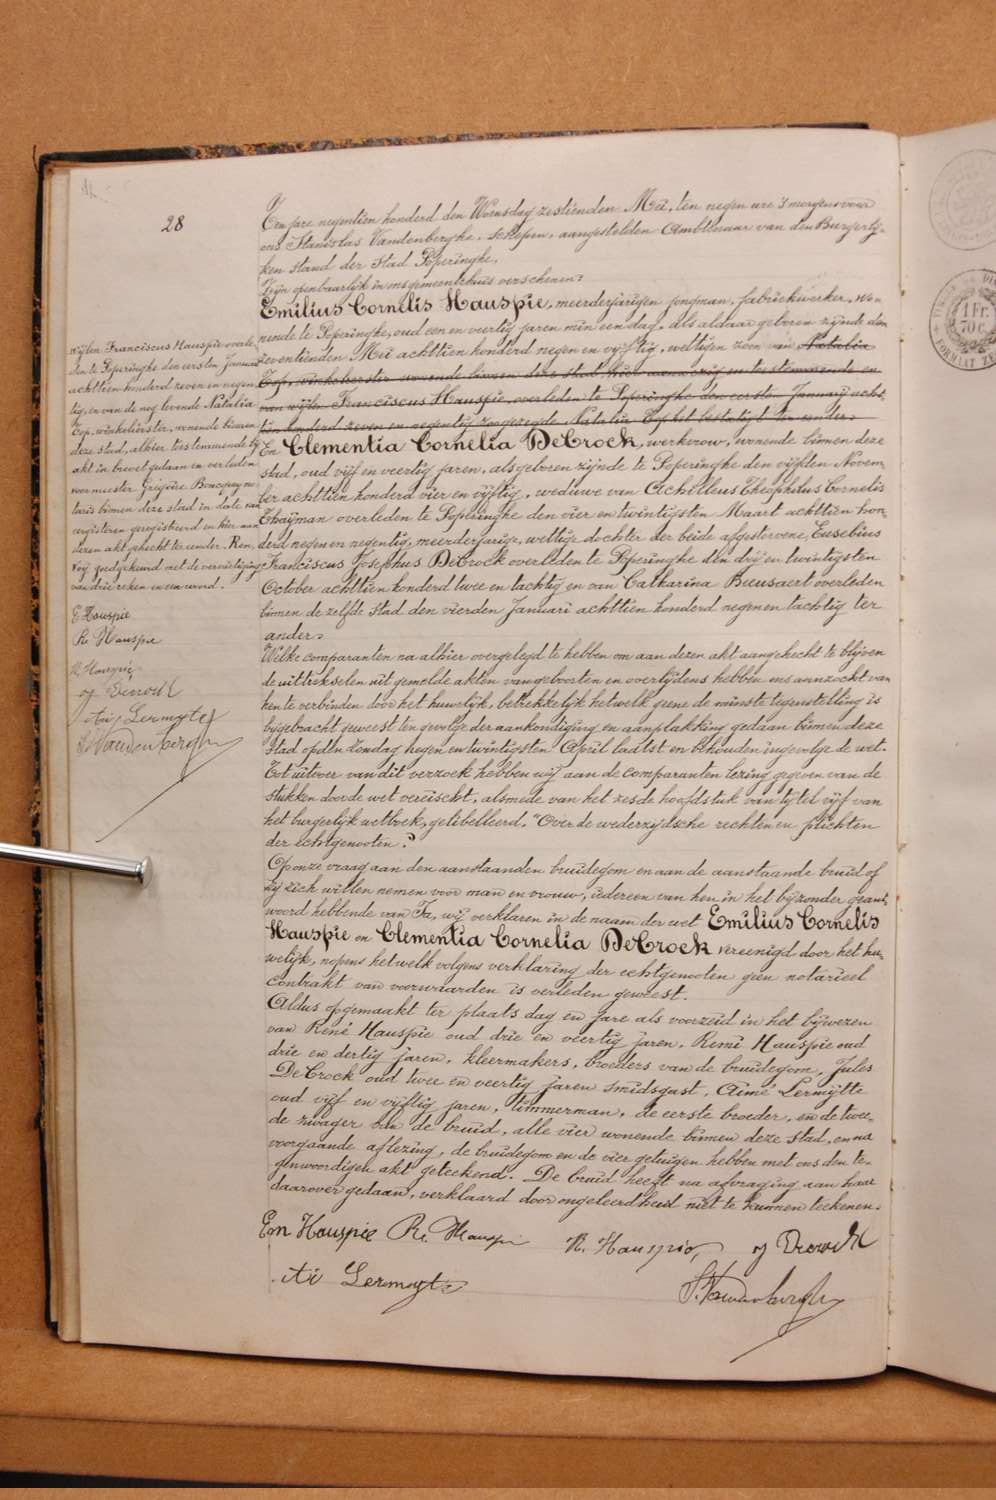 28
Ten jare negentien honderd den Woensdag zestienden Mei, ten negen ure 's morgens voor
ons Stanislas Vandenberghe, schepen, aangestelden Ambtenaar van den Burgerlij-
ken stand der stad Poperinghe,
Zijn openbaarlijk in ons gemeentehuis verschenen:
Emilius Cornelis Hauspie, meerderjarigen jongman, fabriekwerker, wo-
nende te Poperinghe, oud een en veertig jaren min een dag, als aldaar geboren zijnde den
zeventienden Mei achttien honderd negen en vijftig, wettigen zoon van Natalia
Top, winkelierster wonende binnen deze stad hier aanwezig en toestemmende en
van wijlen Franciscus Hauspie, overleden te Poperinghe den eersten Januarij acht-
tien honderd zeven en negentig
En Clementia Cornelia DeCrock, werkvrouw, wonende binnen deze
stad, oud vijf en veertig jaren, als geboren zijnde te Poperinghe den vijften Novem-
ber achttien honderd vier en vijftig, weduwe van Achilleus Theophilus Cornelis
Thaÿman overleden te Poperinghe den vier en twintigsten Maart achttien hon-
derd negen en negentig, meerderjarige, wettige dochter der beide afgestorvene, Eusebius
Franciscus Josephus DeCrock overleden te Poperinghe den drij en twintigsten
October achttien honderd twee en tachtig en van Catharina Beusaert overleden
binnen de zelfde stad den vierden Januari achttien honderd negen en tachtig ter
ander.
Welke comparanten na alhier overgelegd te hebben om aan dezen akt aangehecht te blijven
de uittrekselen uit gemelde akten van geboorten en overlijdens hebben ons aanzocht van
hen te verbinden door het huwelijk, betrekkelijk hetwelk geene de minste tegenstelling is
bijgebracht geweest ten gevolge der aankondiging en aanplakking gedaan binnen deze
stad op den Zondag negen en twintigsten April laatst en behouden ingevolge de wet.
Tot uitvoer van dit verzoek hebben wij aan de comparanten lezing gegeven van de
stukken door de wet vereischt, alsmede van het zesde hoofdstuk van tijtel vijf van
het burgerlijk wetboek, getibelleerd, "Over de wederzijdsche rechten en plichten
der echtgenooten."
Op onze vraag aan den aanstaanden bruidegom en aan de aanstaande bruid of
zij zich willen nemen voor man en vrouw, iedereen van hen in het bijzonder geant-
woord hebbende van Ja, wij verklaren in de naam der wet Emilius Cornelis
Hauspie en Clementia Cornelia DeCrock vereenigd door het hu-
welijk, nopens hetwelk volgens verklaring der echtgenooten geen notarieel
contrakt van voorwaarden is verleden geweest.
Aldus opgemaakt ter plaats dag en jare als voorzeid in het bijwezen
van René Hauspie oud drie en veertig jaren, Remi Hauspie oud
drie en dertig jaren, kleermakers, broeders van de bruidegom, Jules
DeCrock oud twee en veertig jaren smidsgast, Aimé Lermÿtte
oud vijf en vijftig jaren, timmerman, de eerste broeder, en de twee-
de zwager van de bruid, alle vier wonende binnen deze stad, en na
voorgaande aflezing, de bruidegom en de vier getuigen hebben met ons den te-
genwoordigen akt geteekend. De bruid heeft na afvraging aan haar
daarover gedaan, verklaard door ongeleerdheid niet te kunnen teekenen.
Em Hauspie Re Hauspie R. Hauspie J Decrock
Ai Lermyte S. Vandenberghe
wijlen Franciscus Hauspie overle-
den te Poperinghe den eersten Januari
achttien honderd zeven en negen-
tig, en van de nog levende Natalia
Top, winkelierster, wonende binnen
deze stad, alhier toestemmende bij
akt in brevet gedaan en verleden
voor meester Grégoire Boucquey no-
taris binnen deze stad in date van
geregistreerd en hier aan
dezen akt gehecht ter eender. Ren-
voij goedgekeurd met de vernietiging
van drie reken en een woord.
E Hauspie
Re Hauspie
R. Hauspie
J Decrock
Ai Lermyte
S. Vandenberghe
1 Fr.
70 c.